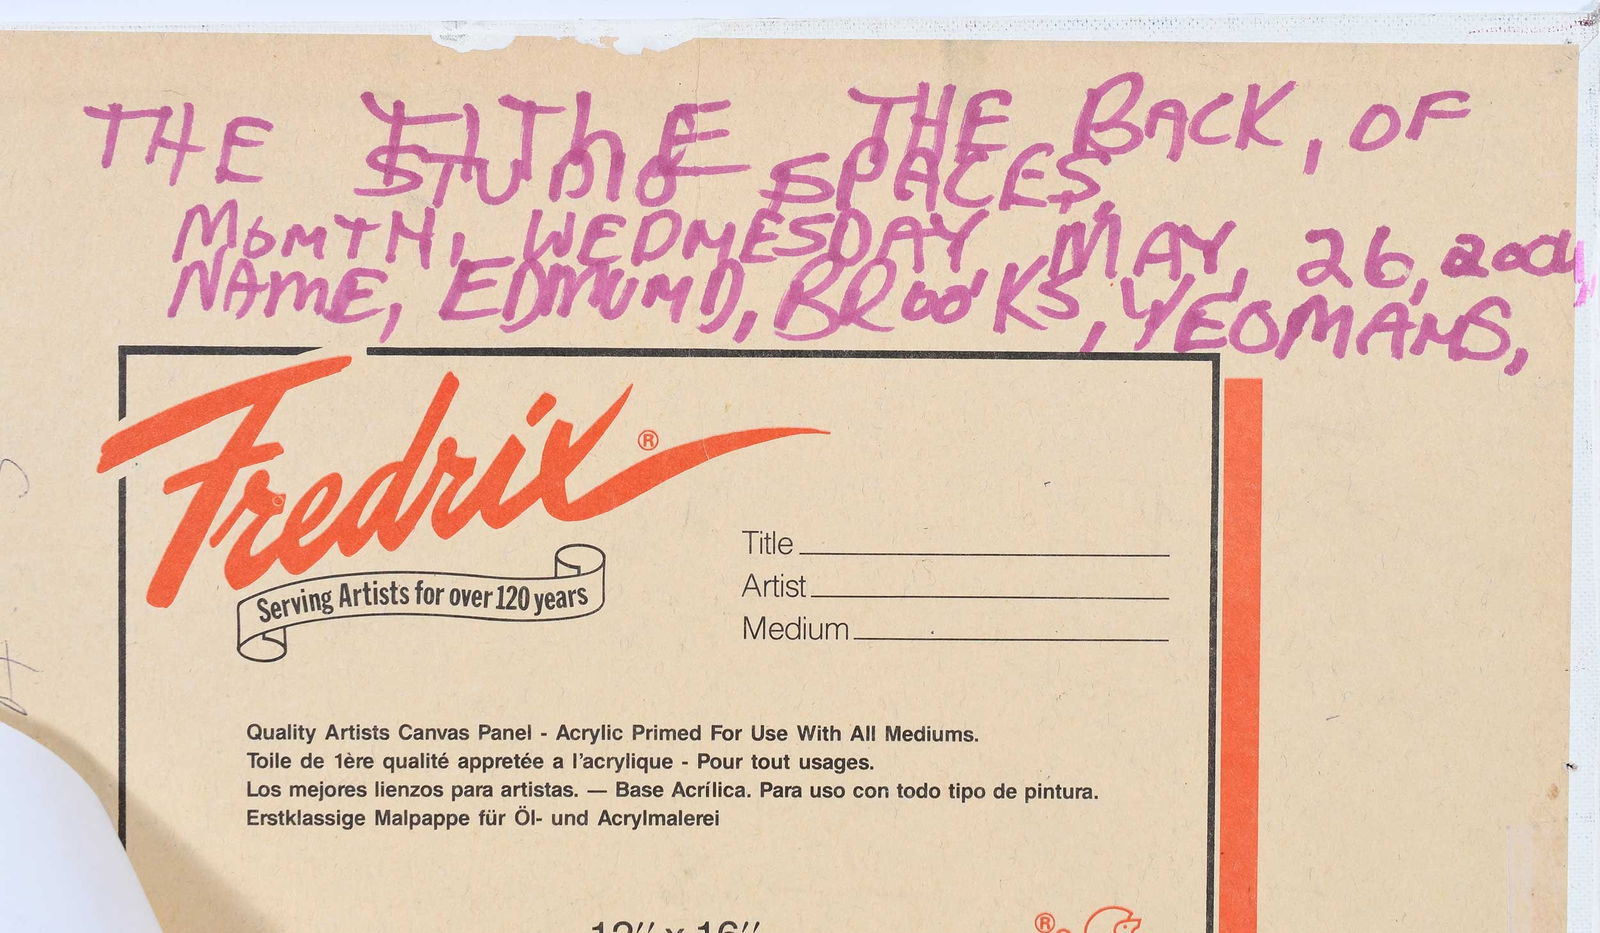 THE TITLE THE BACK, OF
STUDIO SPACES,
MONTH, WEDNESDAY MAY, 26,
NAME, EDMUND, BROOKS, YEOMANS,
Fredrix®
Serving Artists for over 120 years
Title
Artist
Medium
Quality Artists Canvas Panel - Acrylic Primed For Use With All Mediums.
Toile de 1ère qualité appretée a l'acrylique - Pour tout usages.
Los mejores lienzos para artistas. — Base Acrílica. Para uso con todo tipo de pintura.
Erstklassige Malpappe für Öl- und Acrylmalerei
12" x 16"
®